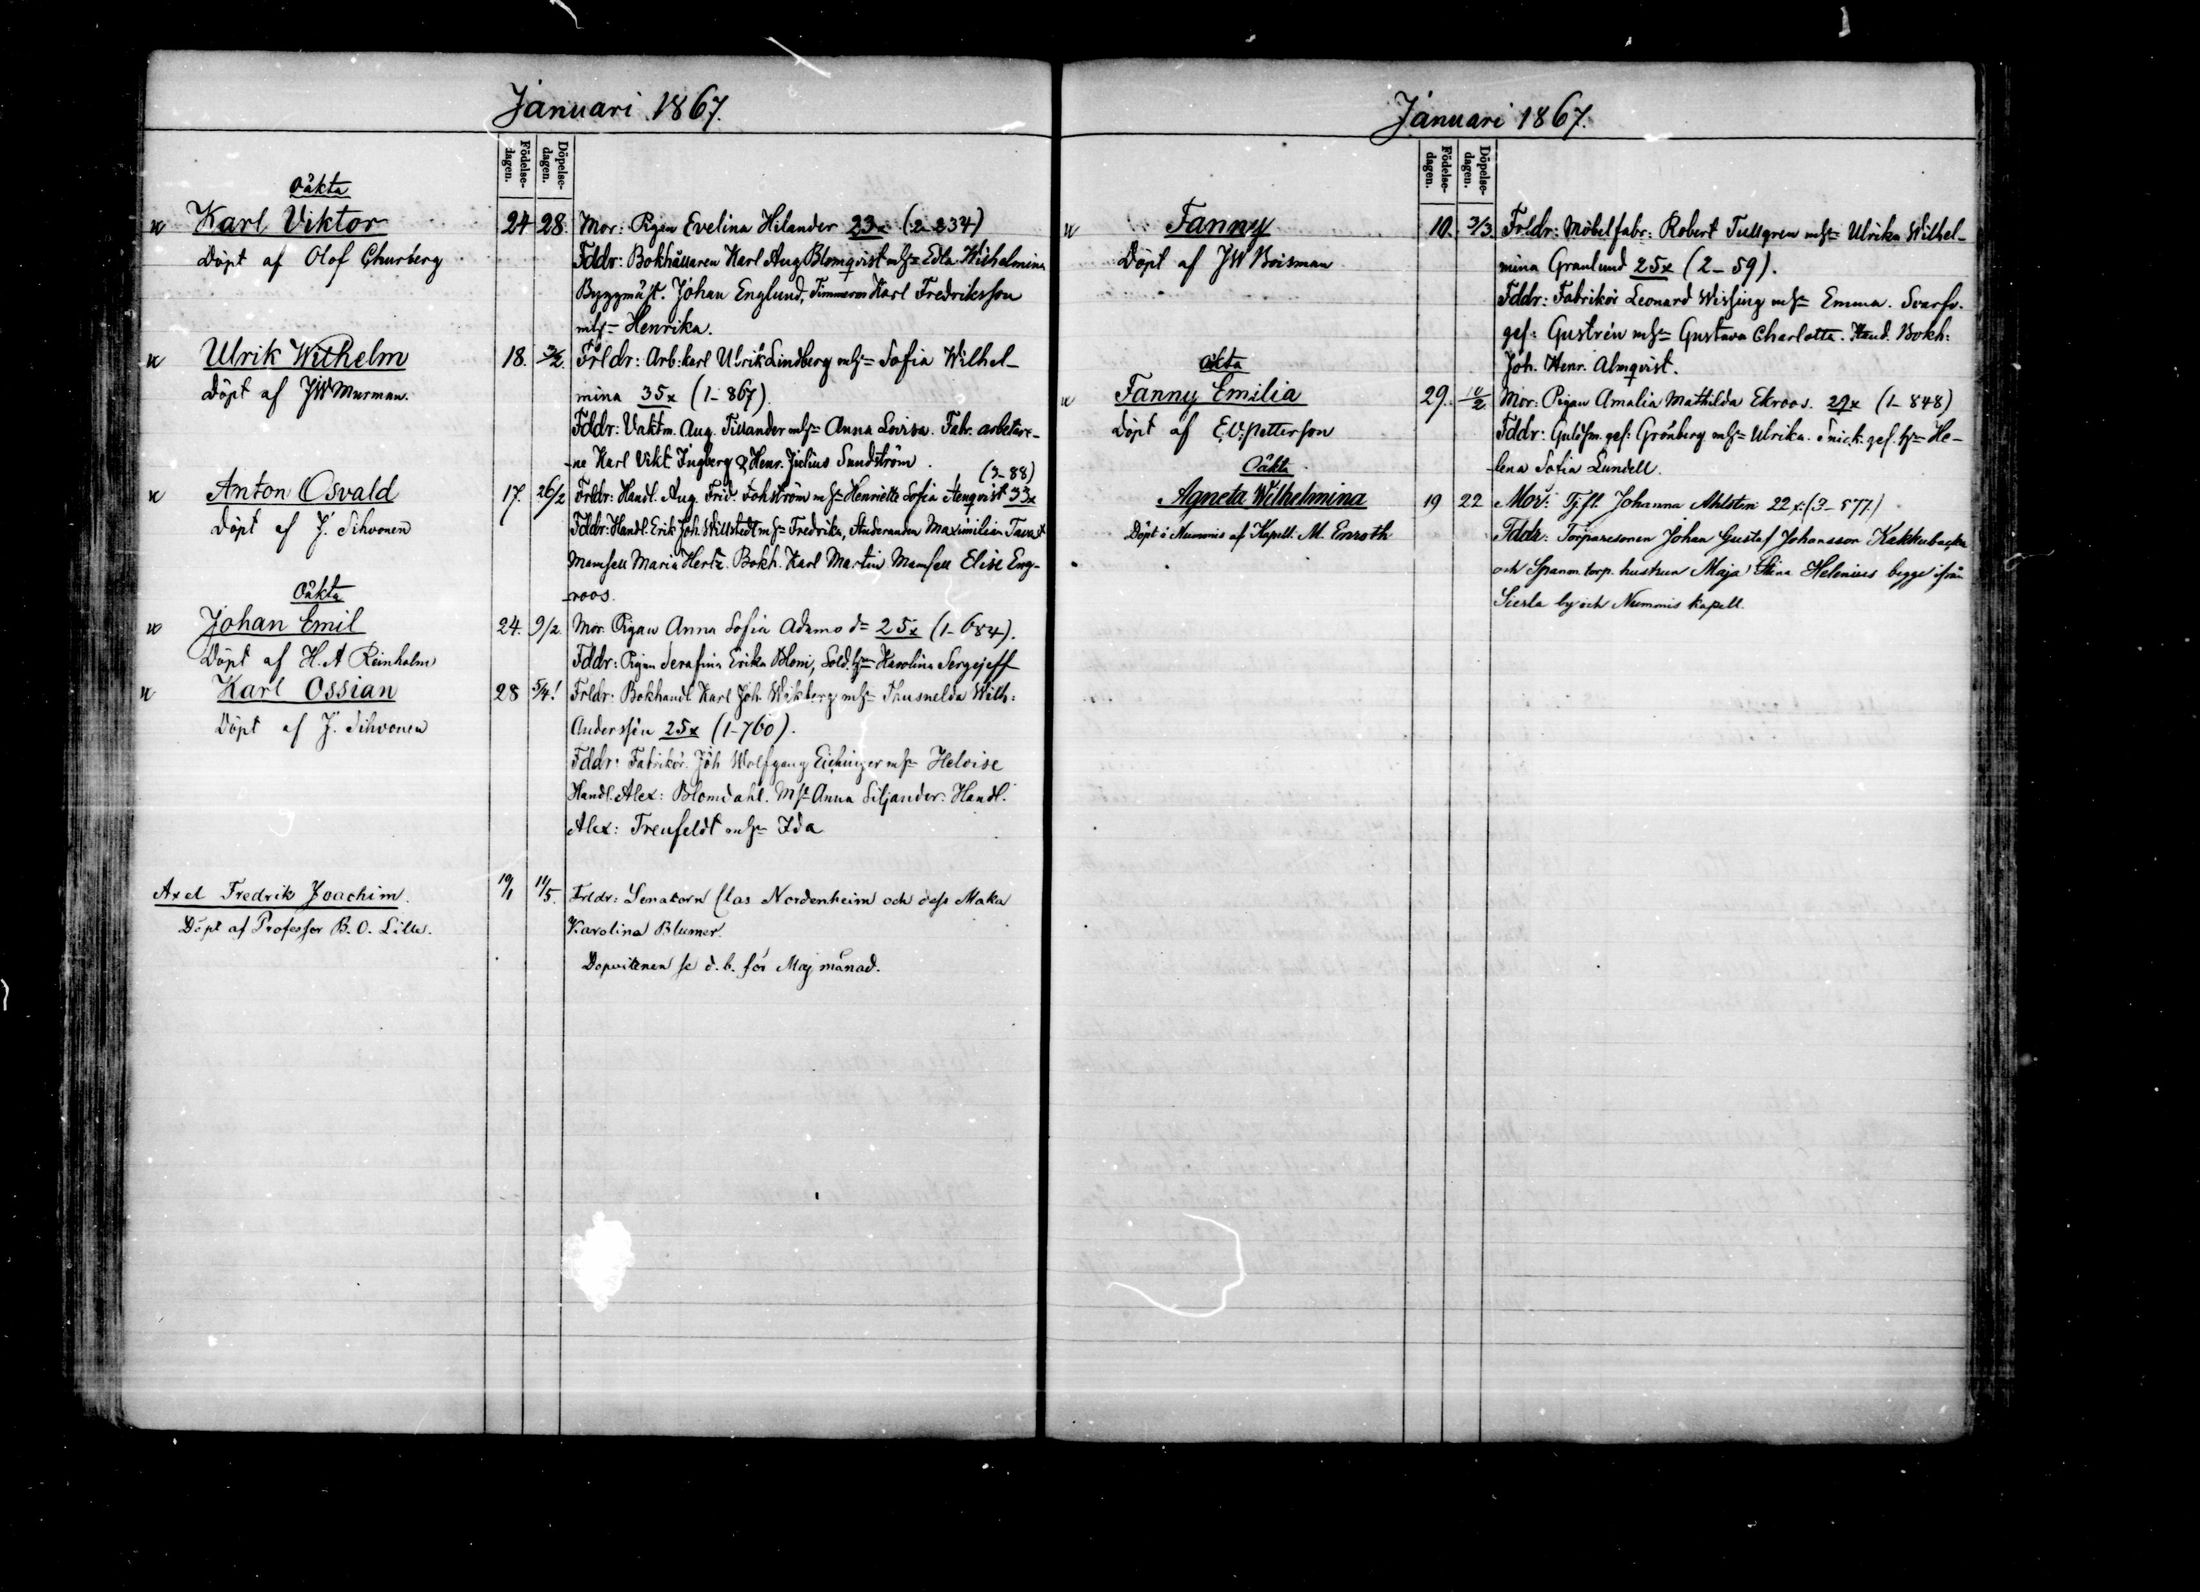 Januari 1867.
Födelse-
dagen.
Döpelse-
dagen.
Oäkta
Karl Viktor
Döpt af Olof Churberg
24
28.
Mor: Pigan Evelina Hilander 23x (2-234)
Fddr: Bokhållaren Karl Aug. Blomqvist mhn Edla Wilhelmina
Byggmäst. Johan Englund, Timmerm Karl Fredriksson
mhn Henrika.
Ulrik Wilhelm
Döpt af JW Murman.
18.
3/2.
Frldr: Arb.karl Ulrik Lindberg mhn Sofia Wilhel-
mina 35x (1-867)
Fddr: Vaktm. Aug. Tillander mhn Anna Lovisa. Fabr. arbetare-
-ne Karl Vikt. Ingberg & Henr. Julius Sundström.
(3-88)
Anton Osvald
Döpt af J. Sihvonen
17.
26/2
Frldr: Handl. Aug. Frid. Fohström mhn Henriette Sofia Stenqvist 33x
Fddr: Handl. Erik Joh. Willstedt mhn Fredrika, Studeranden Maximilian Tavast
Mamsell Maria Hertz. Bokh. Karl Martin Mamsell Elise Eng-
-roos.
Oäkta
Johan Emil
Döpt af H. A Reinholm
24.
9/2.
Mor. Pigan Anna Sofia Adamsdr 25x (1-684).
Fddr: Pigan Serafina Erika Blom, Sold. hn Karolina Sergejeff
Karl Ossian
Döpt af J. Sihvonen
28
5/4!
Frldr: Bokhandl Karl Joh. Wikberg mhn Thusnelda Wilh:
Anderssén 25x (1-760).
Fddr: Fabrikör. Joh Wolfgang Eichinger mhn Heloise
Handl. Alex: Blomdahl. Mll Anna Siljander. Handl.
Alex: Treufeldt mhn Ida
Axel Fredrik Joachim.
Döpt af Professor B. O. Lille.
19/1
11/5.
Frldr: Senatorn Clas Nordenheim och dess Maka
Karolina Blumer.
Dopvittnen se d. b. för Maj månad.
Januari 1867.
Födelse-
dagen.
Döpelse-
dagen.
Fanny
Döpt af JW Boisman
10.
3/3.
Frldr: Möbelfabr: Robert Tullgren mhn Ulrika Wilhel-
mina Granlund 25x (2-59).
Fddr: Fabrikör Leonard Wissing mhn Emma. Svarfv.
ges: Gustrén mhn Gustava Charlotta. Hand. Bokh:
Joh. Henr. Almqvist.
Oäkta
Fanny Emilia
Döpt af E.V. Petterson
29.
10/2
Mor: Pigan Amalia Mathilda Ekroos. 27x (1-848)
Fddr: Guldsm. ges: Grönberg mhn Ulrika. Snick. ges. hn He-
-lena Sofia Lundell.
Oäkta
Agneta Wilhelmina
Döpt i Nummis af Kapell. M. Enroth
19
22
Mor: Tj.fl. Johanna Ahlsten 22 x: (3-577.)
Fddr: Torparesonen Johan Gustaf Johansson Kakkubacka
och Spanm. torp. hustrun Maja Stina Helenius begge ifrån
Sierla by och Nummis kapell.